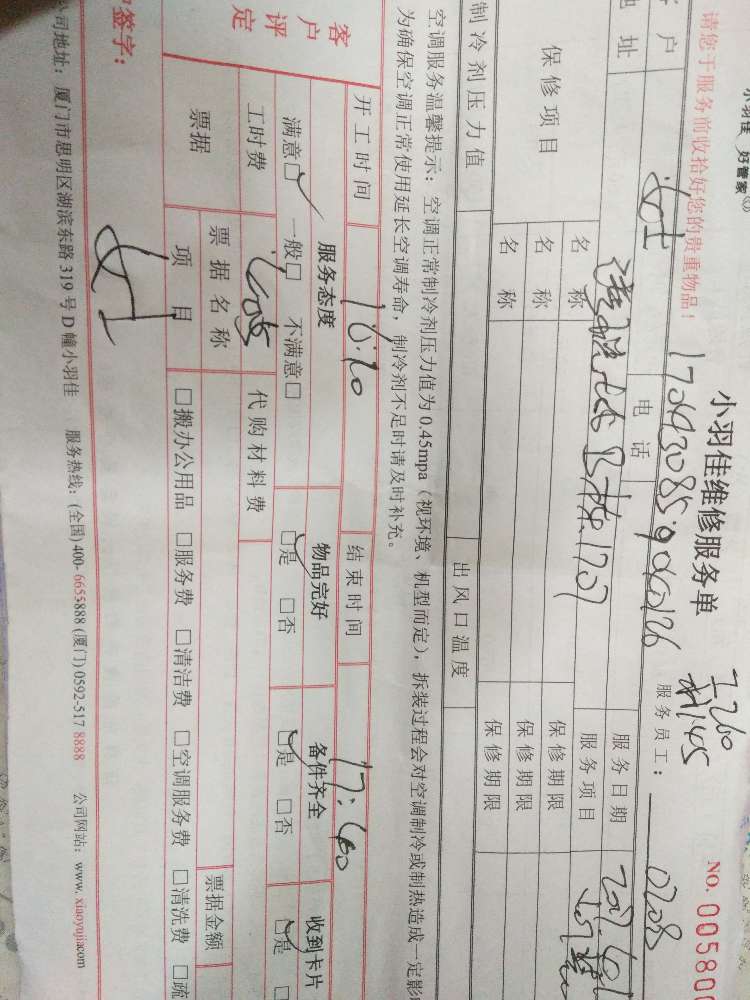 小羽佳 好管家
小羽佳维修服务单
NO. 00580
请您于服务前收拾好您的贵重物品!
服务员工: 0208
客户 女士 电话 服务日期
地址 B栋1707 服务项目
保修项目 名称 保修期限
名称 保修期限
名称 保修期限
制冷剂压力值 出风口温度
空调服务温馨提示: 空调正常制冷剂压力值为0.45mpa (视环境、机型而定), 拆装过程会对空调制冷或制热造成一定影
为确保空调正常使用延长空调寿命, 制冷剂不足时请及时补充。
开工时间 16:20 结束时间 17:40
客户评定 服务态度 物品完好 备件齐全 收到卡片
满意☑ 一般□ 不满意□ ☑是 □否 ☑是 □否 ☑是
工时费 代购材料费
票据 票据名称 票据金额
项目 □搬办公用品 □服务费 □清洁费 □空调服务费 □清洗费 □疏
签字:
司地址: 厦门市思明区湖滨东路319号D幢小羽佳 服务热线: (全国) 400-6655888 (厦门) 0592-517 8888 公司网站: www.xiaoyujia.com